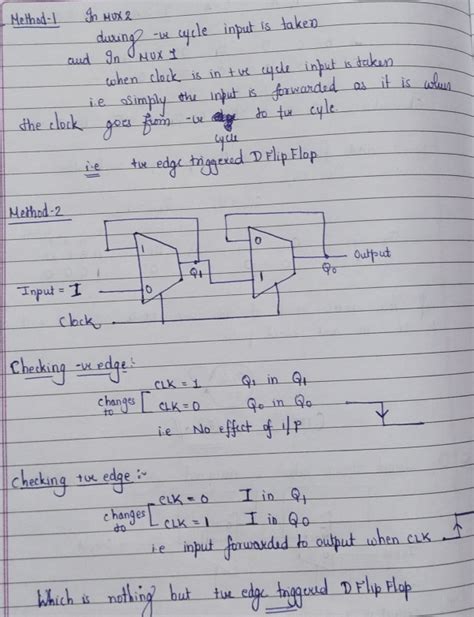 Method-1 In MUX2
during -ve cycle input is taken
and In MUX 1
when clock is in +ve cycle input is taken
i.e simply the input is forwarded as it is when
the clock goes from -ve cycle to +ve cyle
i.e +ve edge triggered D Flip Flop
Method-2
1
0
Q1
0
1
Q0
Output
Input = I
Clock
Checking -ve edge:
changes to
CLK = 1 Q1 in Q1
CLK = 0 Q0 in Q0
i.e No effect of i/p
Checking +ve edge :-
changes to
CLK = 0 I in Q1
CLK = 1 I in Q0
i.e input forwarded to output when CLK
Which is nothing but +ve edge triggered D Flip Flop